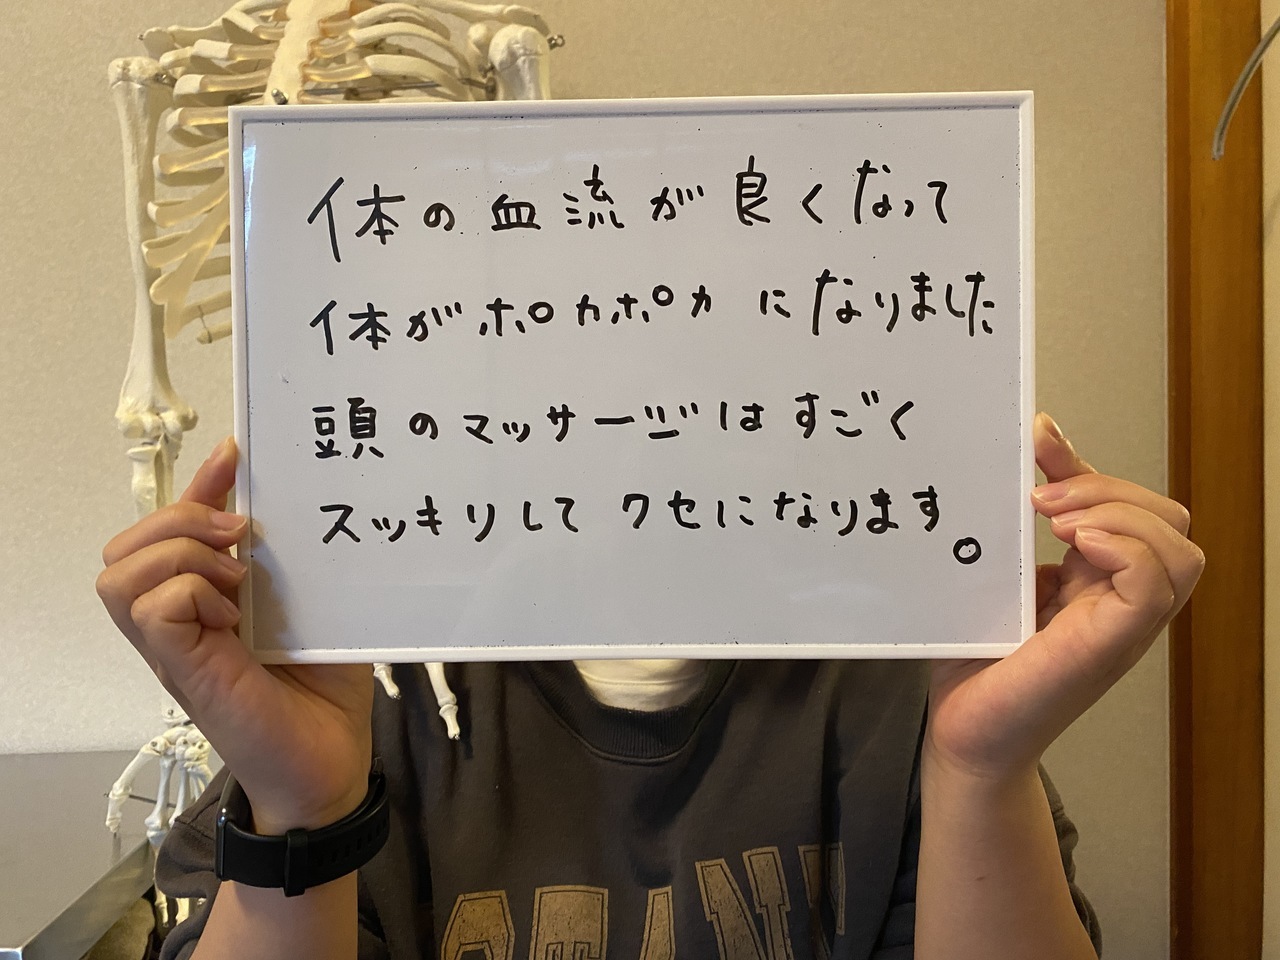 体の血流が良くなって
体がポカポカになりました
頭のマッサージはすごく
スッキリしてクセになります。